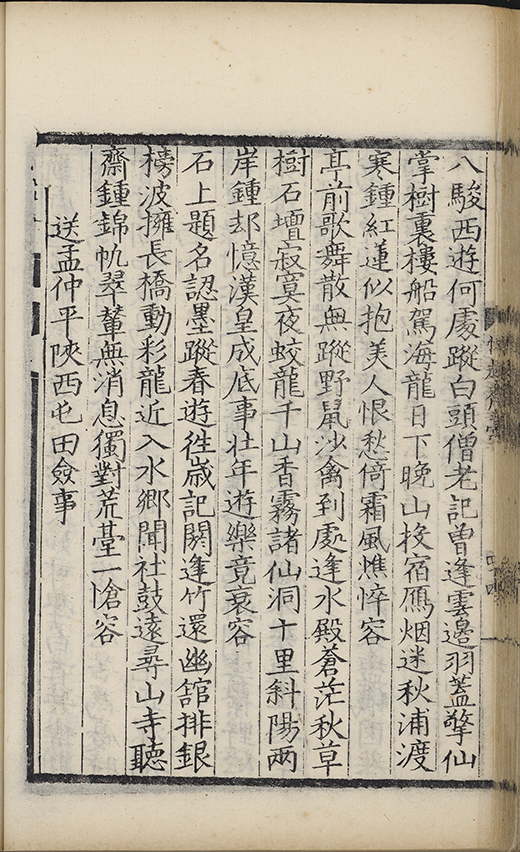 八駿西遊何處蹤白頭僧老記曾逢雲邊羽蓋擎仙
掌樹裏樓船駕海龍日下晚山投宿鴈烟迷秋浦渡
寒鍾紅蓮似抱美人恨愁倚霜風憔悴容
亭前歌舞散無蹤野鼠沙禽到處逢水殿蒼茫秋草
樹石壇寂寞夜蛟龍千山香霧諸仙洞十里斜陽兩
岸鍾却憶漢皇成底事壯年遊樂竟衰容
石上題名認墨蹤春遊徃歲記閼逢竹還幽舘排銀
榜波擁長橋動彩龍近入水鄉聞社鼓遠尋山寺聽
齋鍾錦帆翠輦無消息獨對荒臺一愴容
送孟仲平陝西屯田僉事